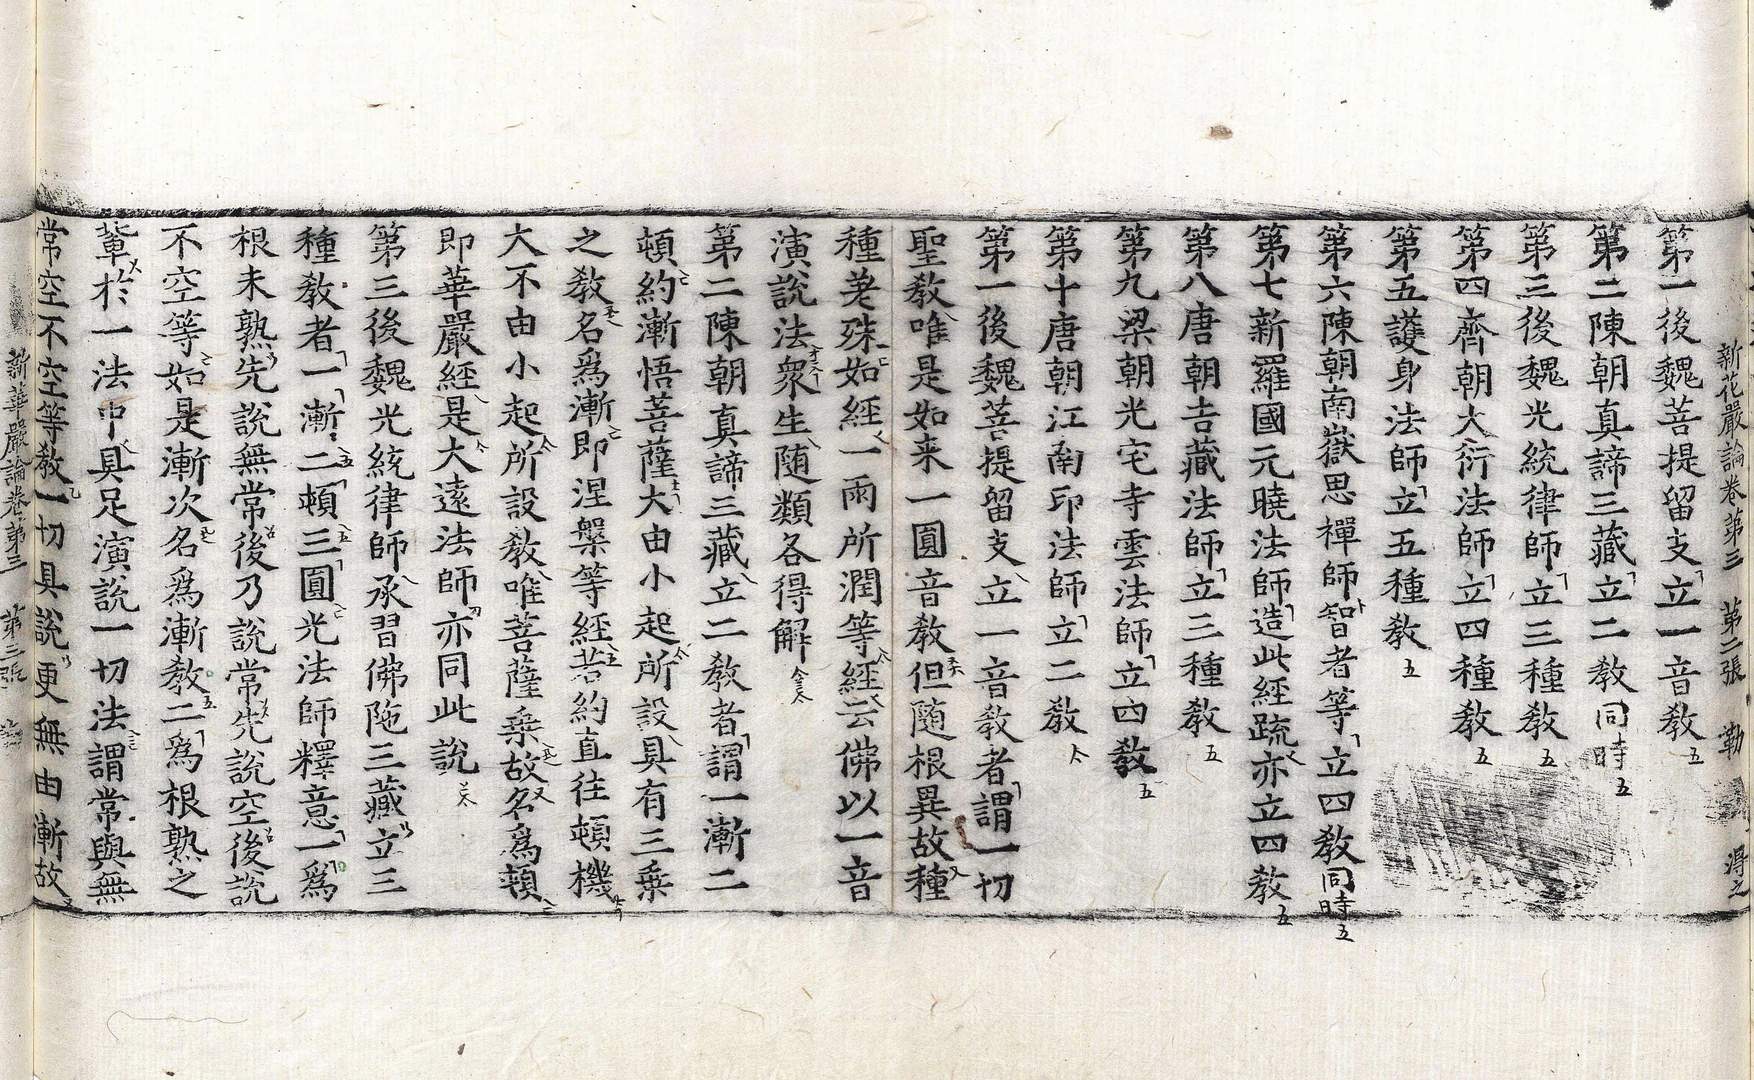 新花嚴論卷第三 第二張 勒 淂之
第一後魏菩提留支立一音教
第二陳朝真諦三藏立二教同時
第三後魏光統律師立三種教
第四齊朝大衍法師立四種教
第五護身法師立五種教
第六陳朝南嶽思禪師智者等立四教同時
第七新羅國元曉法師造此經疏亦立四教
第八唐朝吉藏法師立三種教
第九梁朝光宅寺雲法師立四教
第十唐朝江南印法師立二教
第一後魏菩提留支立一音教者謂一切
聖教唯是如来一圓音教但隨根異故種
種差殊如經一雨所潤等經云佛以一音
演說法衆生随類各得解
第二陳朝真諦三藏立二教者謂一漸二
頓約漸悟菩薩大由小起所設具有三乗
之教名爲漸即涅槃等經若約直往頓機
大不由小起所設教唯菩薩乗故名爲頓
即華嚴經是大遠法師亦同此說
第三後魏光統律師承習佛陁三藏立三
種教者一漸二頓三圓光法師釋意一爲
根未熟先說無常後乃說常先說空後說
不空等如是漸次名爲漸教二爲根熟之
輩於一法中具足演說一切法謂常與無
常空不空等教一切具說更無由漸故
新華嚴論卷第三 第三張